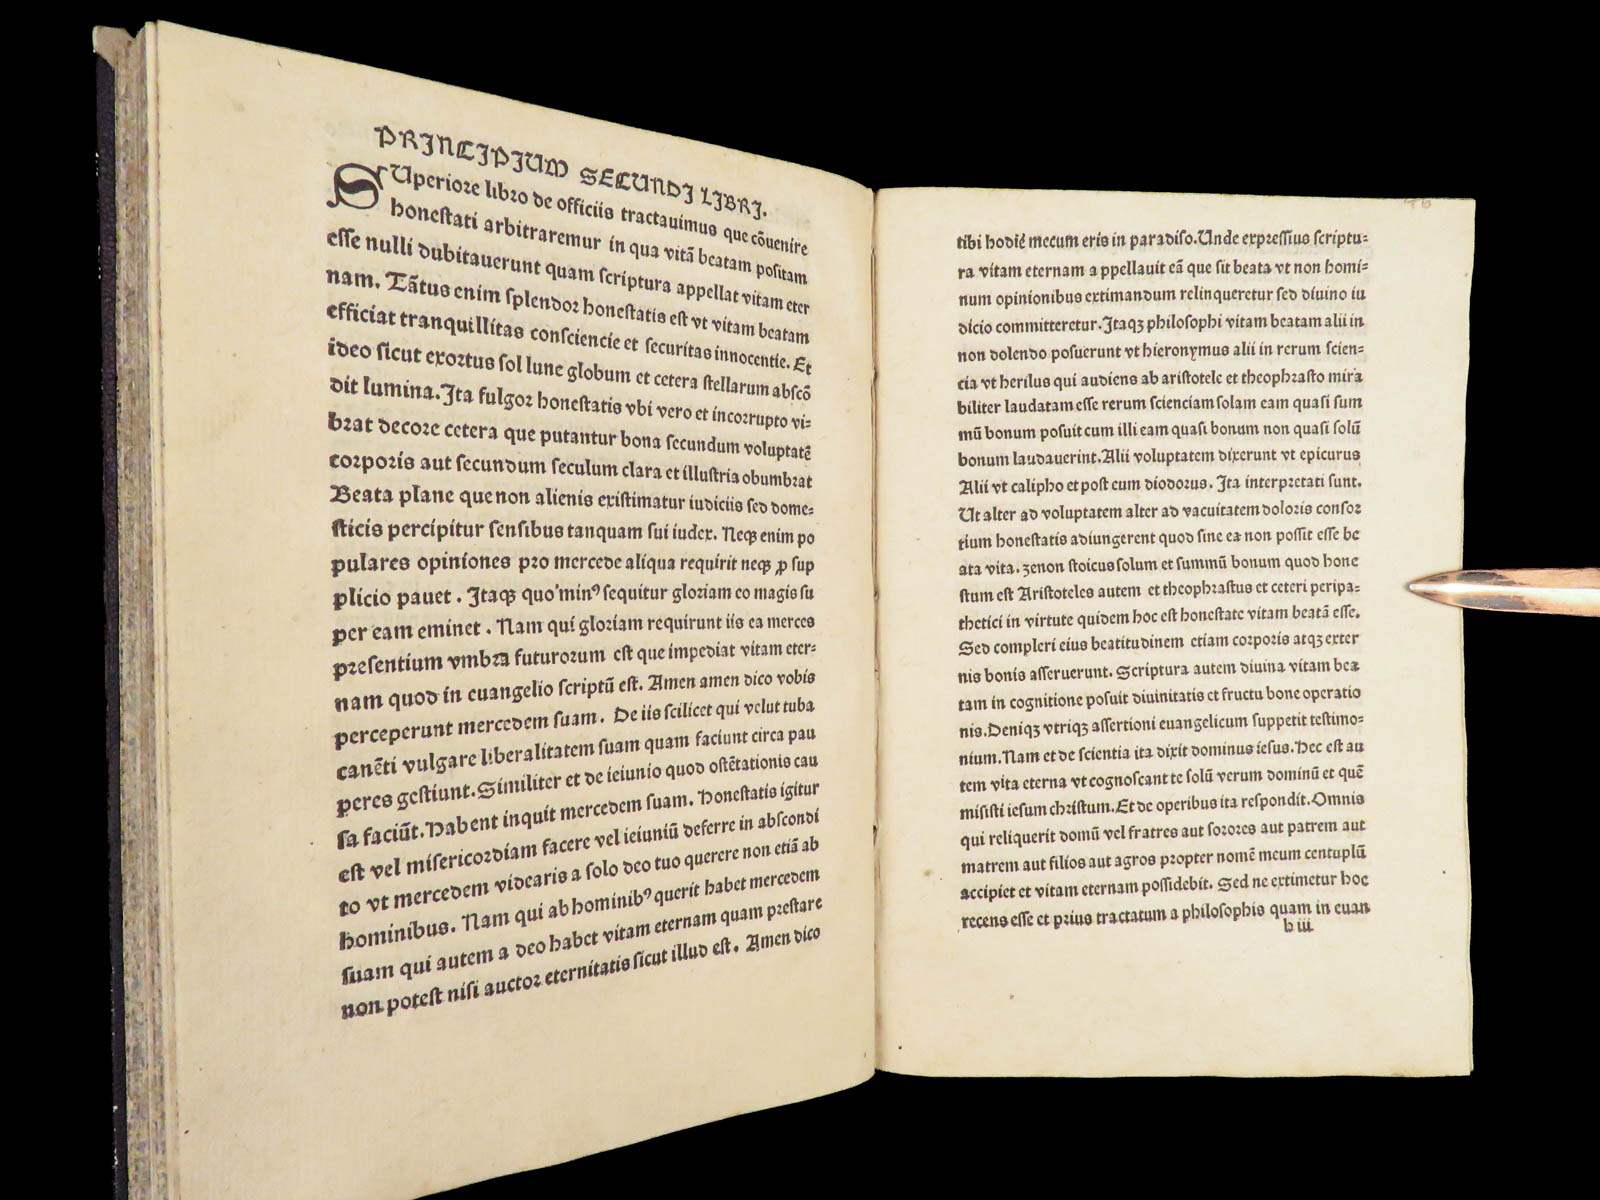 PRINCIPIUM SECUNDI LIBRI.
SUperiore libro de officiis tractauimus que cōuenire
honestati arbitraremur in qua vitā beatam positam
esse nulli dubitauerunt quam scriptura appellat vitam eter
nam. Tātus enim splendor honestatis est vt vitam beatam
efficiat tranquillitas consciencie et securitas innocentie. Et
ideo sicut exortus sol lune globum et cetera stellarum abscō
dit lumina. Ita fulgor honestatis vbi vero et incorrupto vi=
brat decore cetera que putantur bona secundum voluptatē
corporis aut secundum seculum clara et illustria obumbrat
Beata plane que non alienis existimatur iudiciis sed dome=
sticis percipitur sensibus tanquam sui iudex. Neqꝫ enim po
pulares opiniones pro mercede aliqua requirit neqꝫ ꝓ sup
plicio pauet. Itaqꝫ quo minꝰ sequitur gloriam eo magis su
per eam eminet. Nam qui gloriam requirunt iis ea merces
presentium vmbra futurorum est que impediat vitam eter=
nam quod in euangelio scriptū est. Amen amen dico vobis
perceperunt mercedem suam. De iis scilicet qui velut tuba
canēti vulgare liberalitatem suam quam faciunt circa pau
peres gestiunt. Similiter et de ieiunio quod ostētationis cau
sa faciūt. Habent inquit mercedem suam. Honestatis igitur
est vel misericordiam facere vel ieiuniū deferre in abscondi
to vt mercedem videaris a solo deo tuo querere non etiā ab
hominibus. Nam qui ab hominibꝰ querit habet mercedem
suam qui autem a deo habet vitam eternam quam prestare
non potest nisi auctor eternitatis sicut illud est. Amen dico
tibi hodie mecum eris in paradiso. Unde expressius scriptu=
ra vitam eternam appellauit eā que sit beata vt non homi=
num opinionibus extimandum relinqueretur sed diuino iu
dicio committeretur. Itaqꝫ philosophi vitam beatam alii in
non dolendo posuerunt vt hieronymus alii in rerum scien=
cia vt herilus qui audiens ab aristotele et theophrasto mira
biliter laudatam esse rerum scienciam solam eam quasi sum
mū bonum posuit cum illi eam quasi bonum non quasi solū
bonum laudauerint. Alii voluptatem dixerunt vt epicurus
Alii vt calipho et post eum diodorus. Ita interpretati sunt.
Ut alter ad voluptatem alter ad vacuitatem doloris consor
tium honestatis adiungerent quod sine ea non possit esse be
ata vita. zenon stoicus solum et summū bonum quod hone
stum est Aristoteles autem et theophrastus et ceteri peripa=
thetici in virtute quidem hoc est honestate vitam beatā esse.
Sed compleri eius beatitudinem etiam corporis atqꝫ exter
nis bonis asseruerunt. Scriptura autem diuina vitam bea
tam in cognitione posuit diuinitatis et fructu bone operatio
nis. Deniqꝫ vtriqꝫ assertioni euangelicum suppetit testimo=
nium. Nam et de scientia ita dixit dominus iesus. Hec est au
tem vita eterna vt cognoscant te solū verum dominū et quē
misisti iesum christum. Et de operibus ita respondit. Omnis
qui reliquerit domū vel fratres aut sorores aut patrem aut
matrem aut filios aut agros propter nomē meum centuplū
accipiet et vitam eternam possidebit. Sed ne extimetur hoc
recens esse et prius tractatum a philosophis quam in euan
h iii